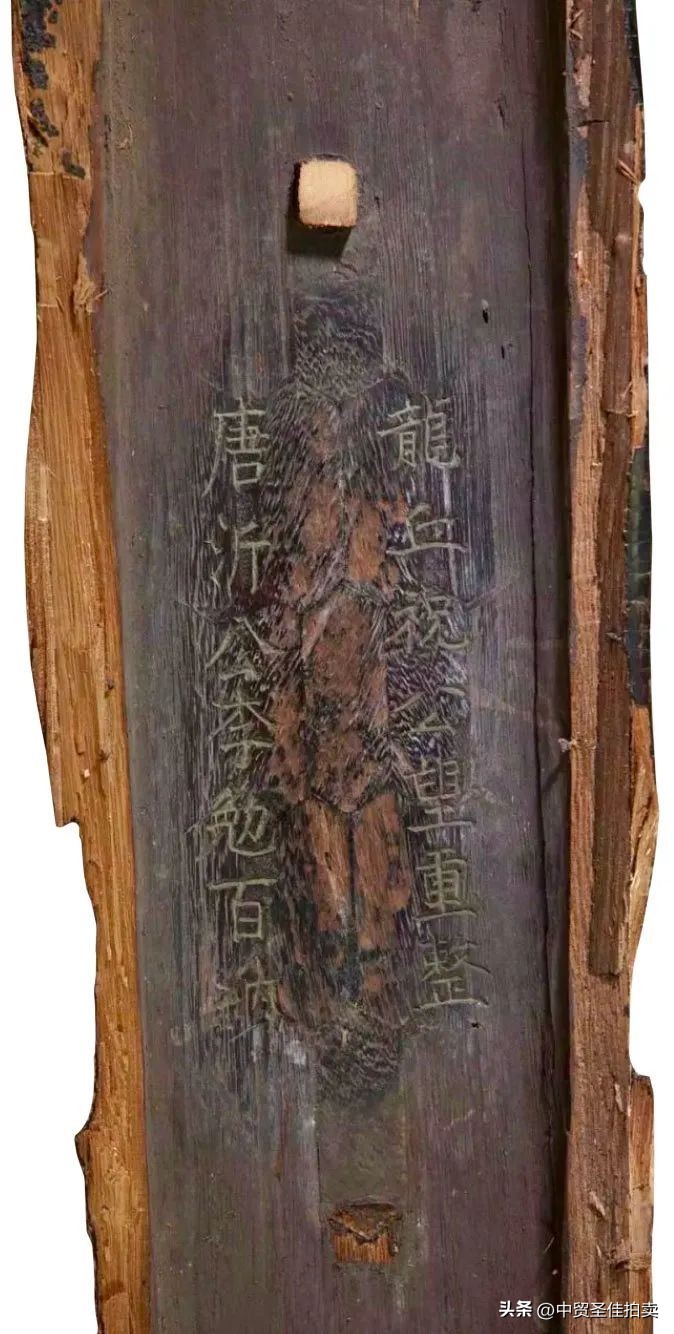 龍丘祝公望重整
唐沂公李勉百衲
头条 @中贸圣佳拍卖